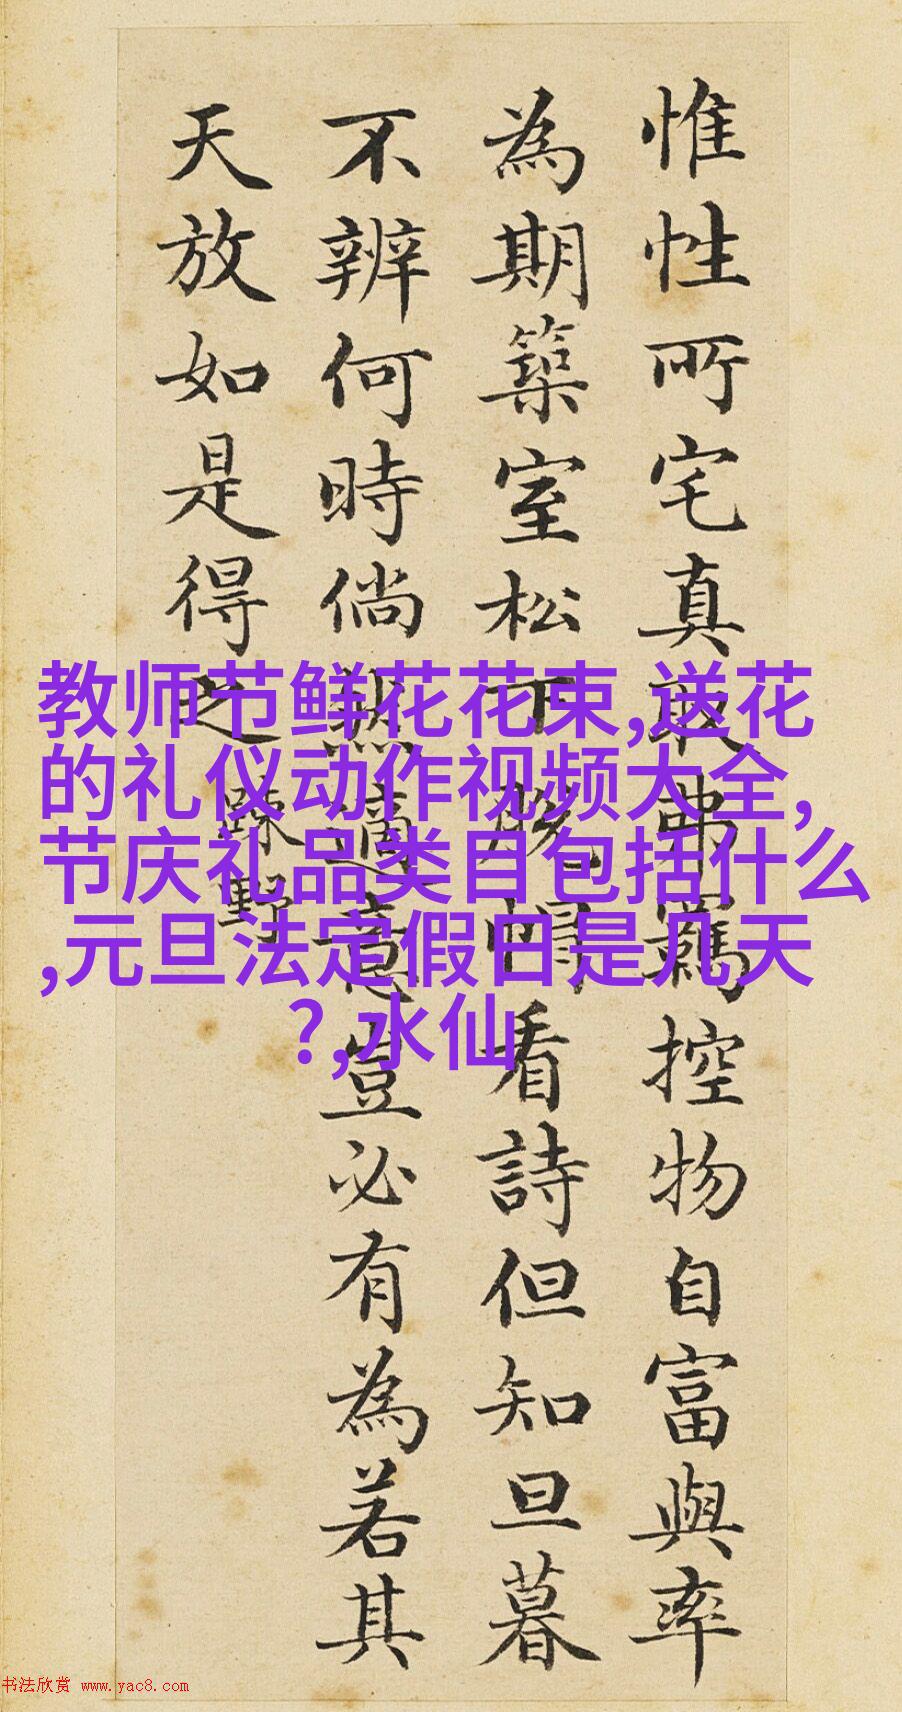 惟性所宅真取弗羈控物自富與率
為期築室松下脫帽看詩但知旦暮
不辨何時倘然適意豈必有為若其
天放如是得之
疎野
教师节鲜花花束,送花
的礼仪动作视频大全,
节庆礼品类目包括什么
,元旦法定假日是几天
?,水仙
书法欣赏 www.yac8.com